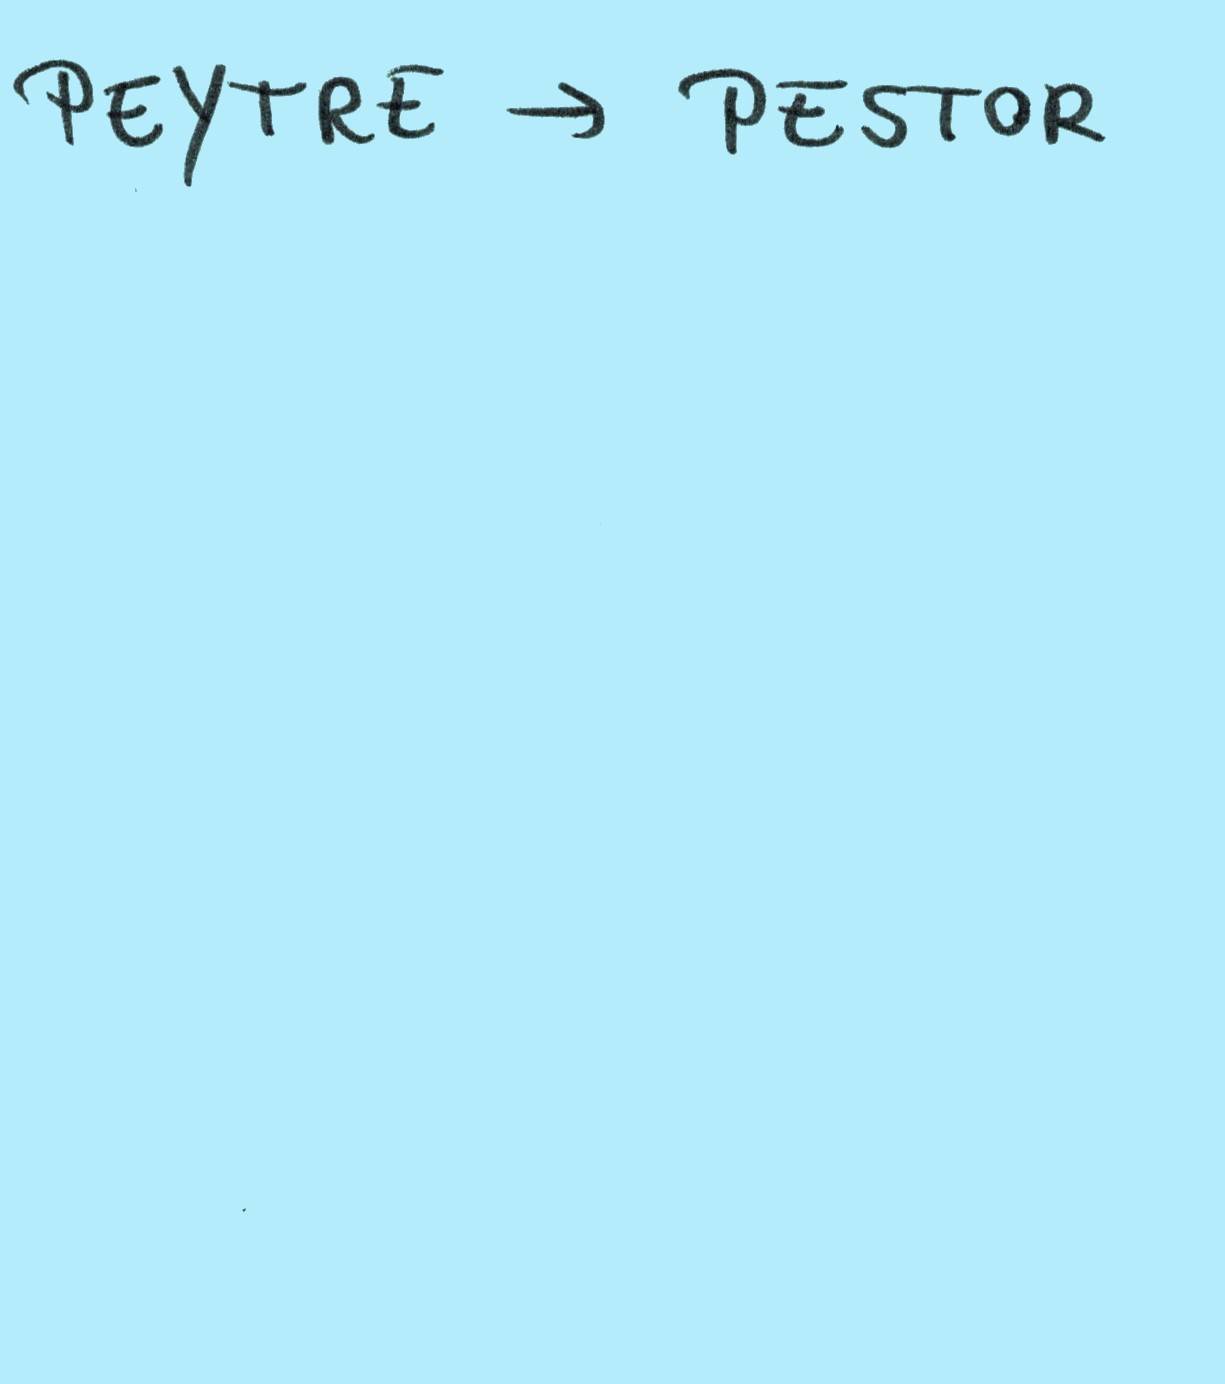 PEYTRE → PESTOR